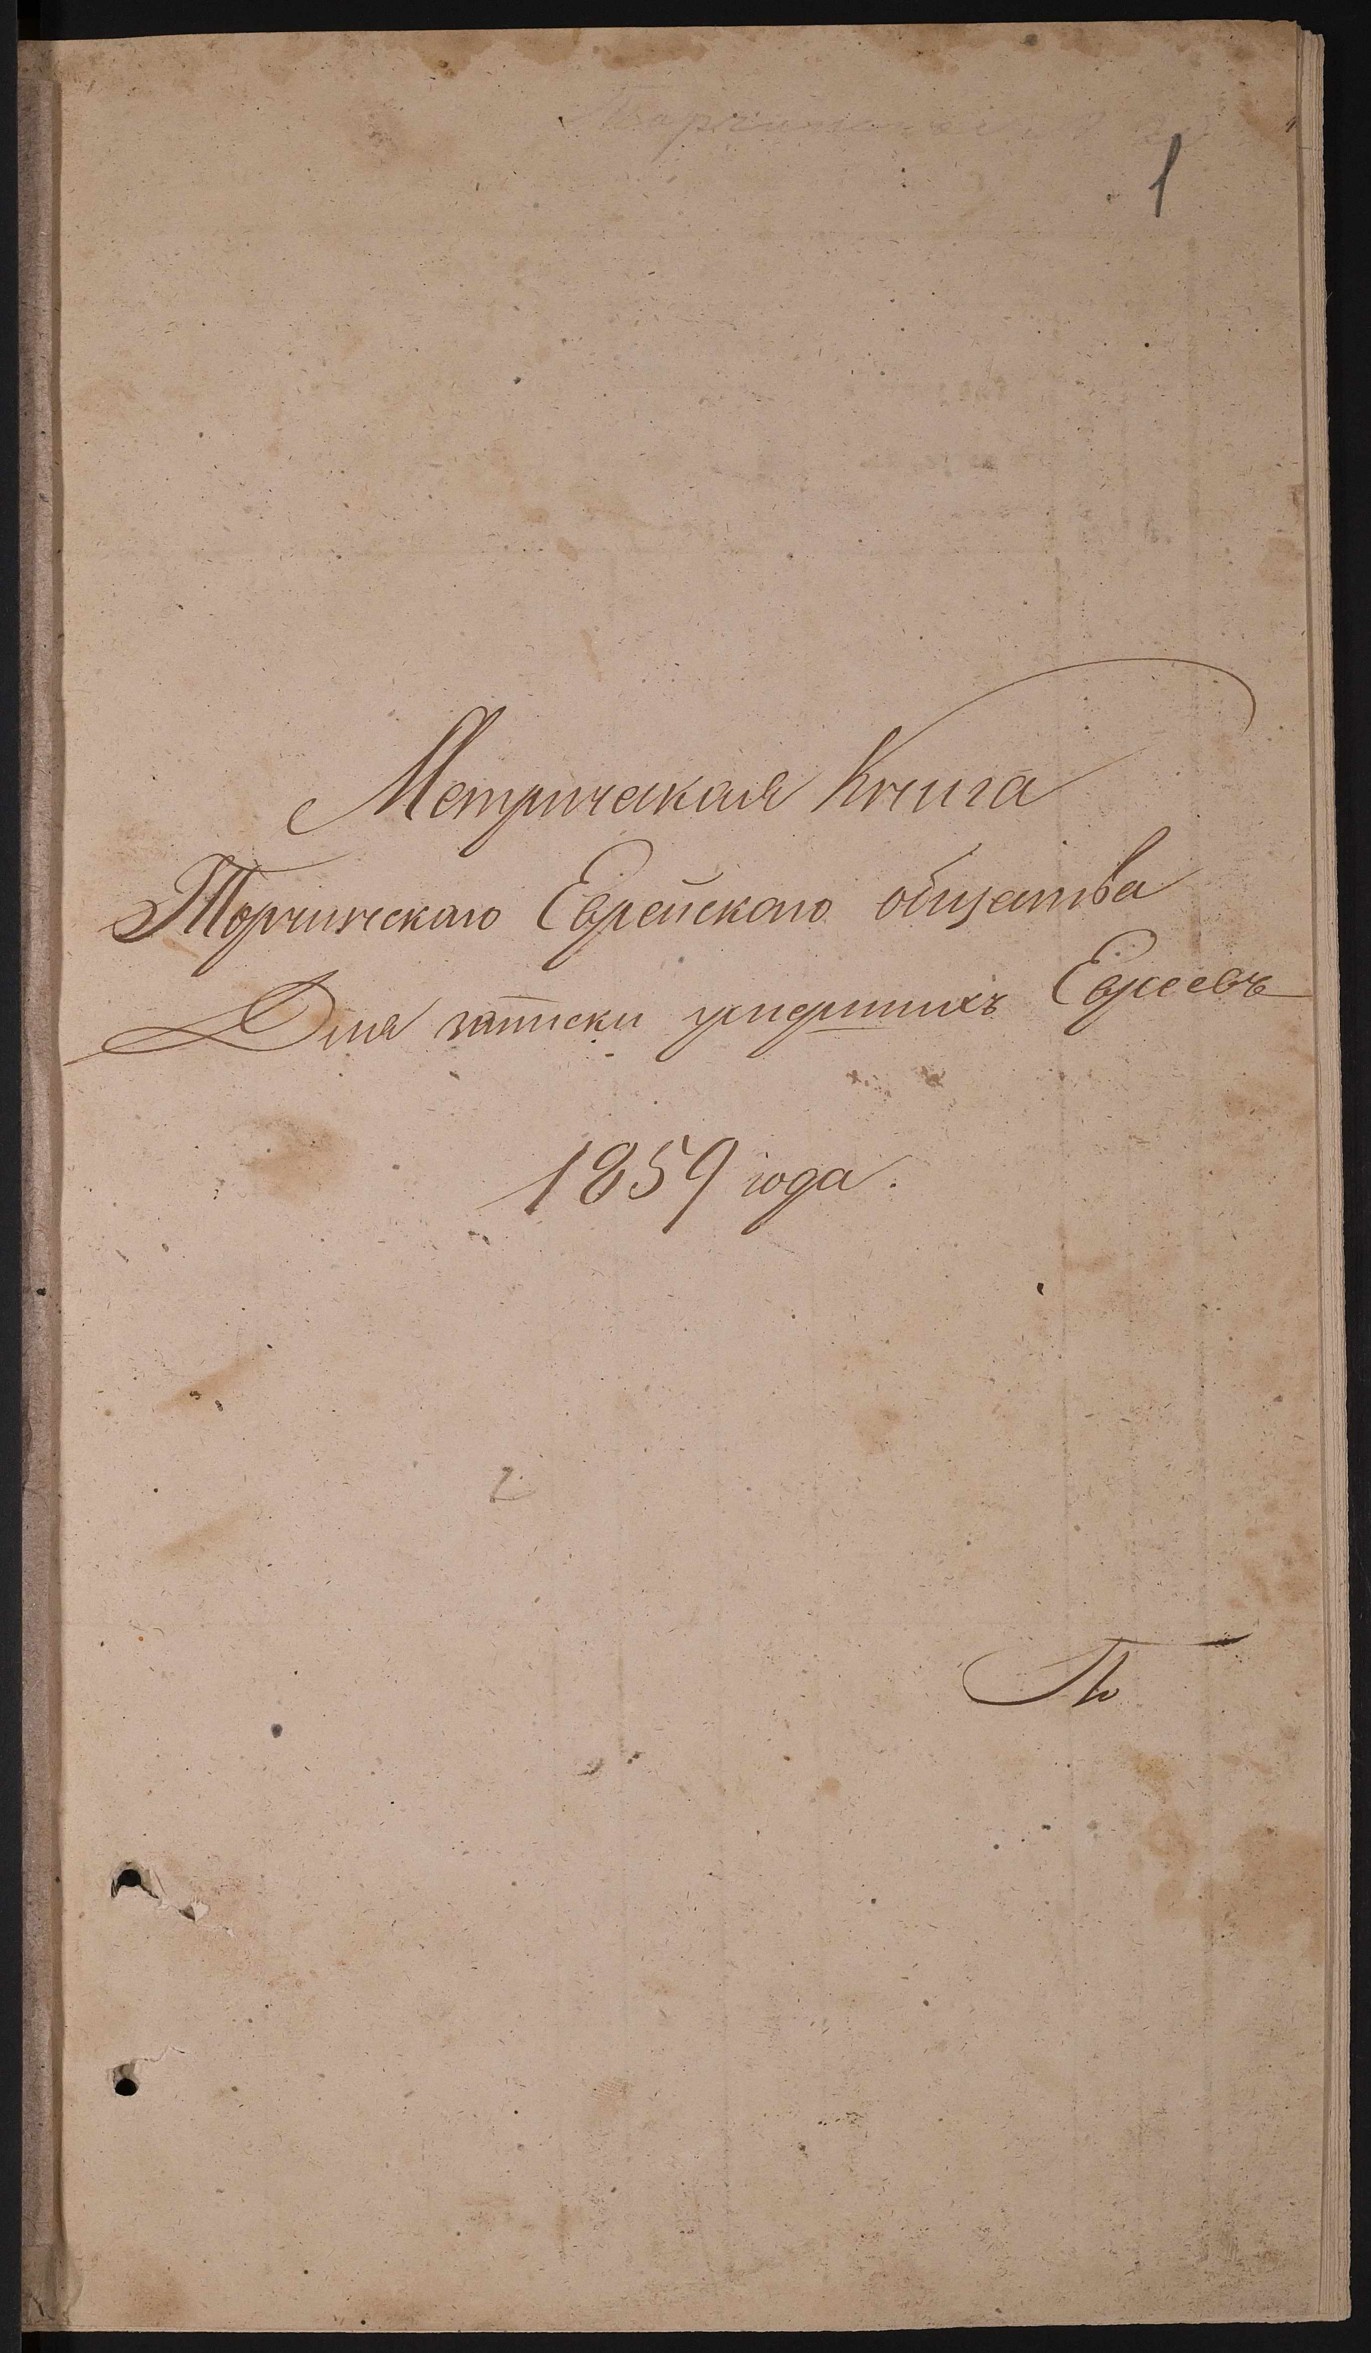 1
Метрическая Книга
Торчинскаго Еврейскаго общества
Для записки умершихъ Евреевъ
1859 года.
2
По